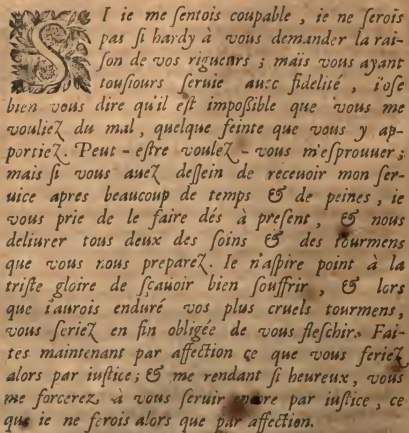 SI ie me sentois coupable, ie ne serois
pas si hardy à vous demander la rai-
son de vos rigueurs ; mais vous ayant
tousiours seruie auec fidelité, i'ose
bien vous dire qu'il est impoßible que vous me
vouliez du mal, quelque feinte que vous y ap-
portiez. Peut-estre voulez-vous m'esprouuer ;
mais si vous auez dessein de receuoir mon ser-
uice apres beaucoup de temps & de peines, ie
vous prie de le faire dés à present, & nous
deliurer tous deux des soins & des tourmens
que vous nous preparez. Ie n'aspire point à la
triste gloire de sçauoir bien souffrir, & lors
que i'aurois enduré vos plus cruels tourmens,
vous seriez en fin obligée de vous fleschir. Fai-
tes maintenant par affection ce que vous feriez
alors par iustice ; & me rendant si heureux, vous
me forcerez à vous seruir encore par iustice, ce
que ie ne ferois alors que par affection.